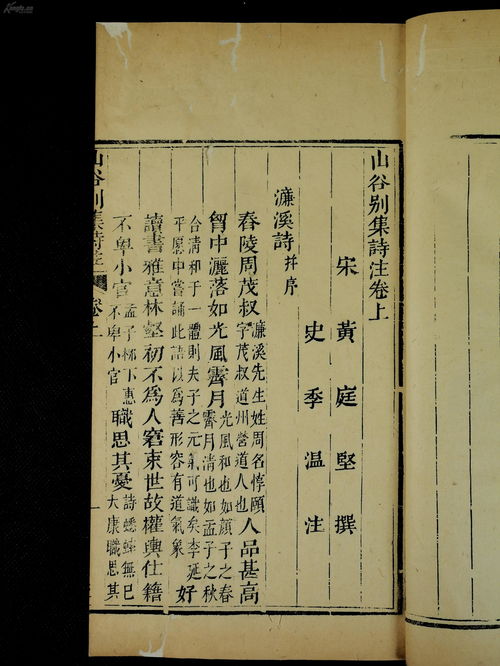 山谷别集詩注卷上
宋 黃庭堅 撰
史季温 注
濂溪詩 并序
舂陵周茂叔 濂溪先生姓周名惇頤字茂叔道州營道人也 人品甚高
胷中灑落如光風霽月 光風和也如顏子之春霽月清也如孟子之秋
合清和于一體則夫子之元氣可識矣李延平愿中嘗誦此語以為善形容有道氣象 好
讀書雅意林壑初不為人窘束世故權輿仕籍
不卑小官 孟子栁下惠不卑小官 職思其憂 詩蟋蟀無已大康職思其
山谷别集詩注 卷上
一